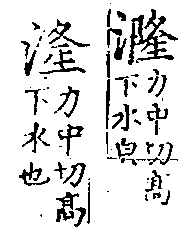 漋
力中切高
下水皃
湰
力中切高
下水也